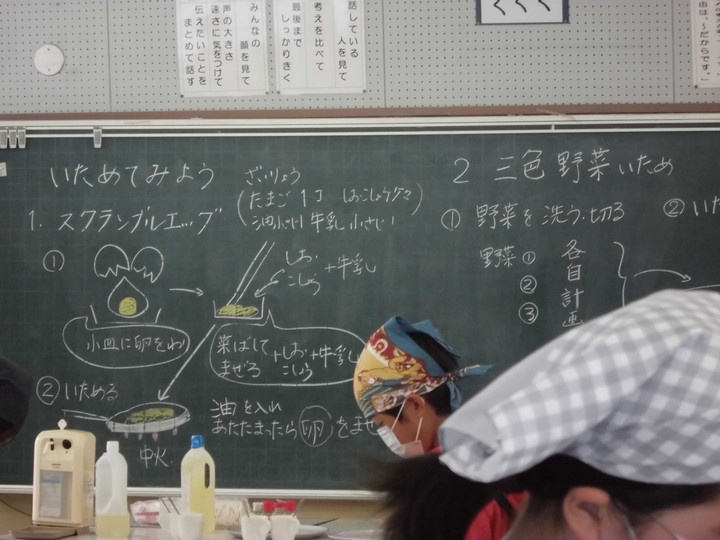 みんなの
顔を見て
声の大きさ
速さに気をつけて
伝えたいことを
まとめて話す
話している
人を見て
考えを比べて
最後まで
しっかりきく
くくく
由は、~だからです。
いためてみよう
ざいりょう
(たまご 1コ しおこしょう少々
油小さじ1 牛乳 小さじ1)
1. スクランブルエッグ
①
しお
こしょう
+牛乳
小皿に卵をわり
菜ばして
まぜる
+しお
こしょう
+牛乳
② いためる
中火
油を入れ
あたたまったら 卵 をませ
2 三色野菜いため
① 野菜を洗う・切る
野菜 ①
②
③
各自計画
② いた